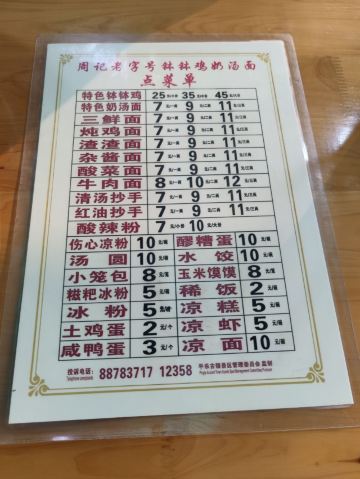 周记老字号钵钵鸡奶汤面
点菜单
特色钵钵鸡 25元/小份 35元/中份 45元/大份
特色奶汤面 7元/一两 9元/二两 11元/三两
三鲜面 7元/一两 9元/二两 11元/三两
炖鸡面 7元/一两 9元/二两 11元/三两
渣渣面 7元/一两 9元/二两 11元/三两
杂酱面 7元/一两 9元/二两 11元/三两
酸菜面 7元/一两 9元/二两 11元/三两
牛肉面 8元/一两 10元/二两 12元/三两
清汤抄手 7元/一两 9元/二两 11元/三两
红油抄手 7元/一两 9元/二两 11元/三两
酸辣粉 7元/小份 10元/大份
伤心凉粉 10元/碗 醪糟蛋 10元/碗
汤圆 10元/碗 水饺 10元/碗
小笼包 8元/笼 玉米馍馍 8元/笼
糍粑冰粉 5元/碗 稀饭 2元/碗
冰粉 5元/碗 凉糕 5元/碗
土鸡蛋 2元/个 凉虾 5元/碗
咸鸭蛋 3元/个 凉面 10元/碗
投诉电话: 88783717 12358 平乐古镇景区管理委员会 监制
Telephone complaints: